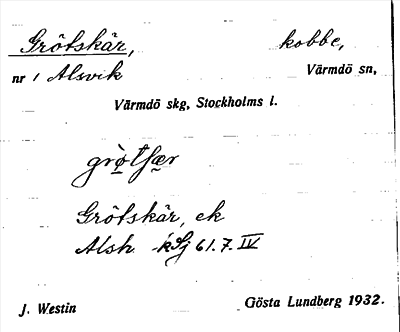 Grötskär, kobbe,
nr 1 Alsvik Värmdö sn,
Värmdö skg, Stockholms l.
gròtʃær
Grötskär, ek
Alsh. 61.7.IV
J. Westin Gösta Lundberg 1932.